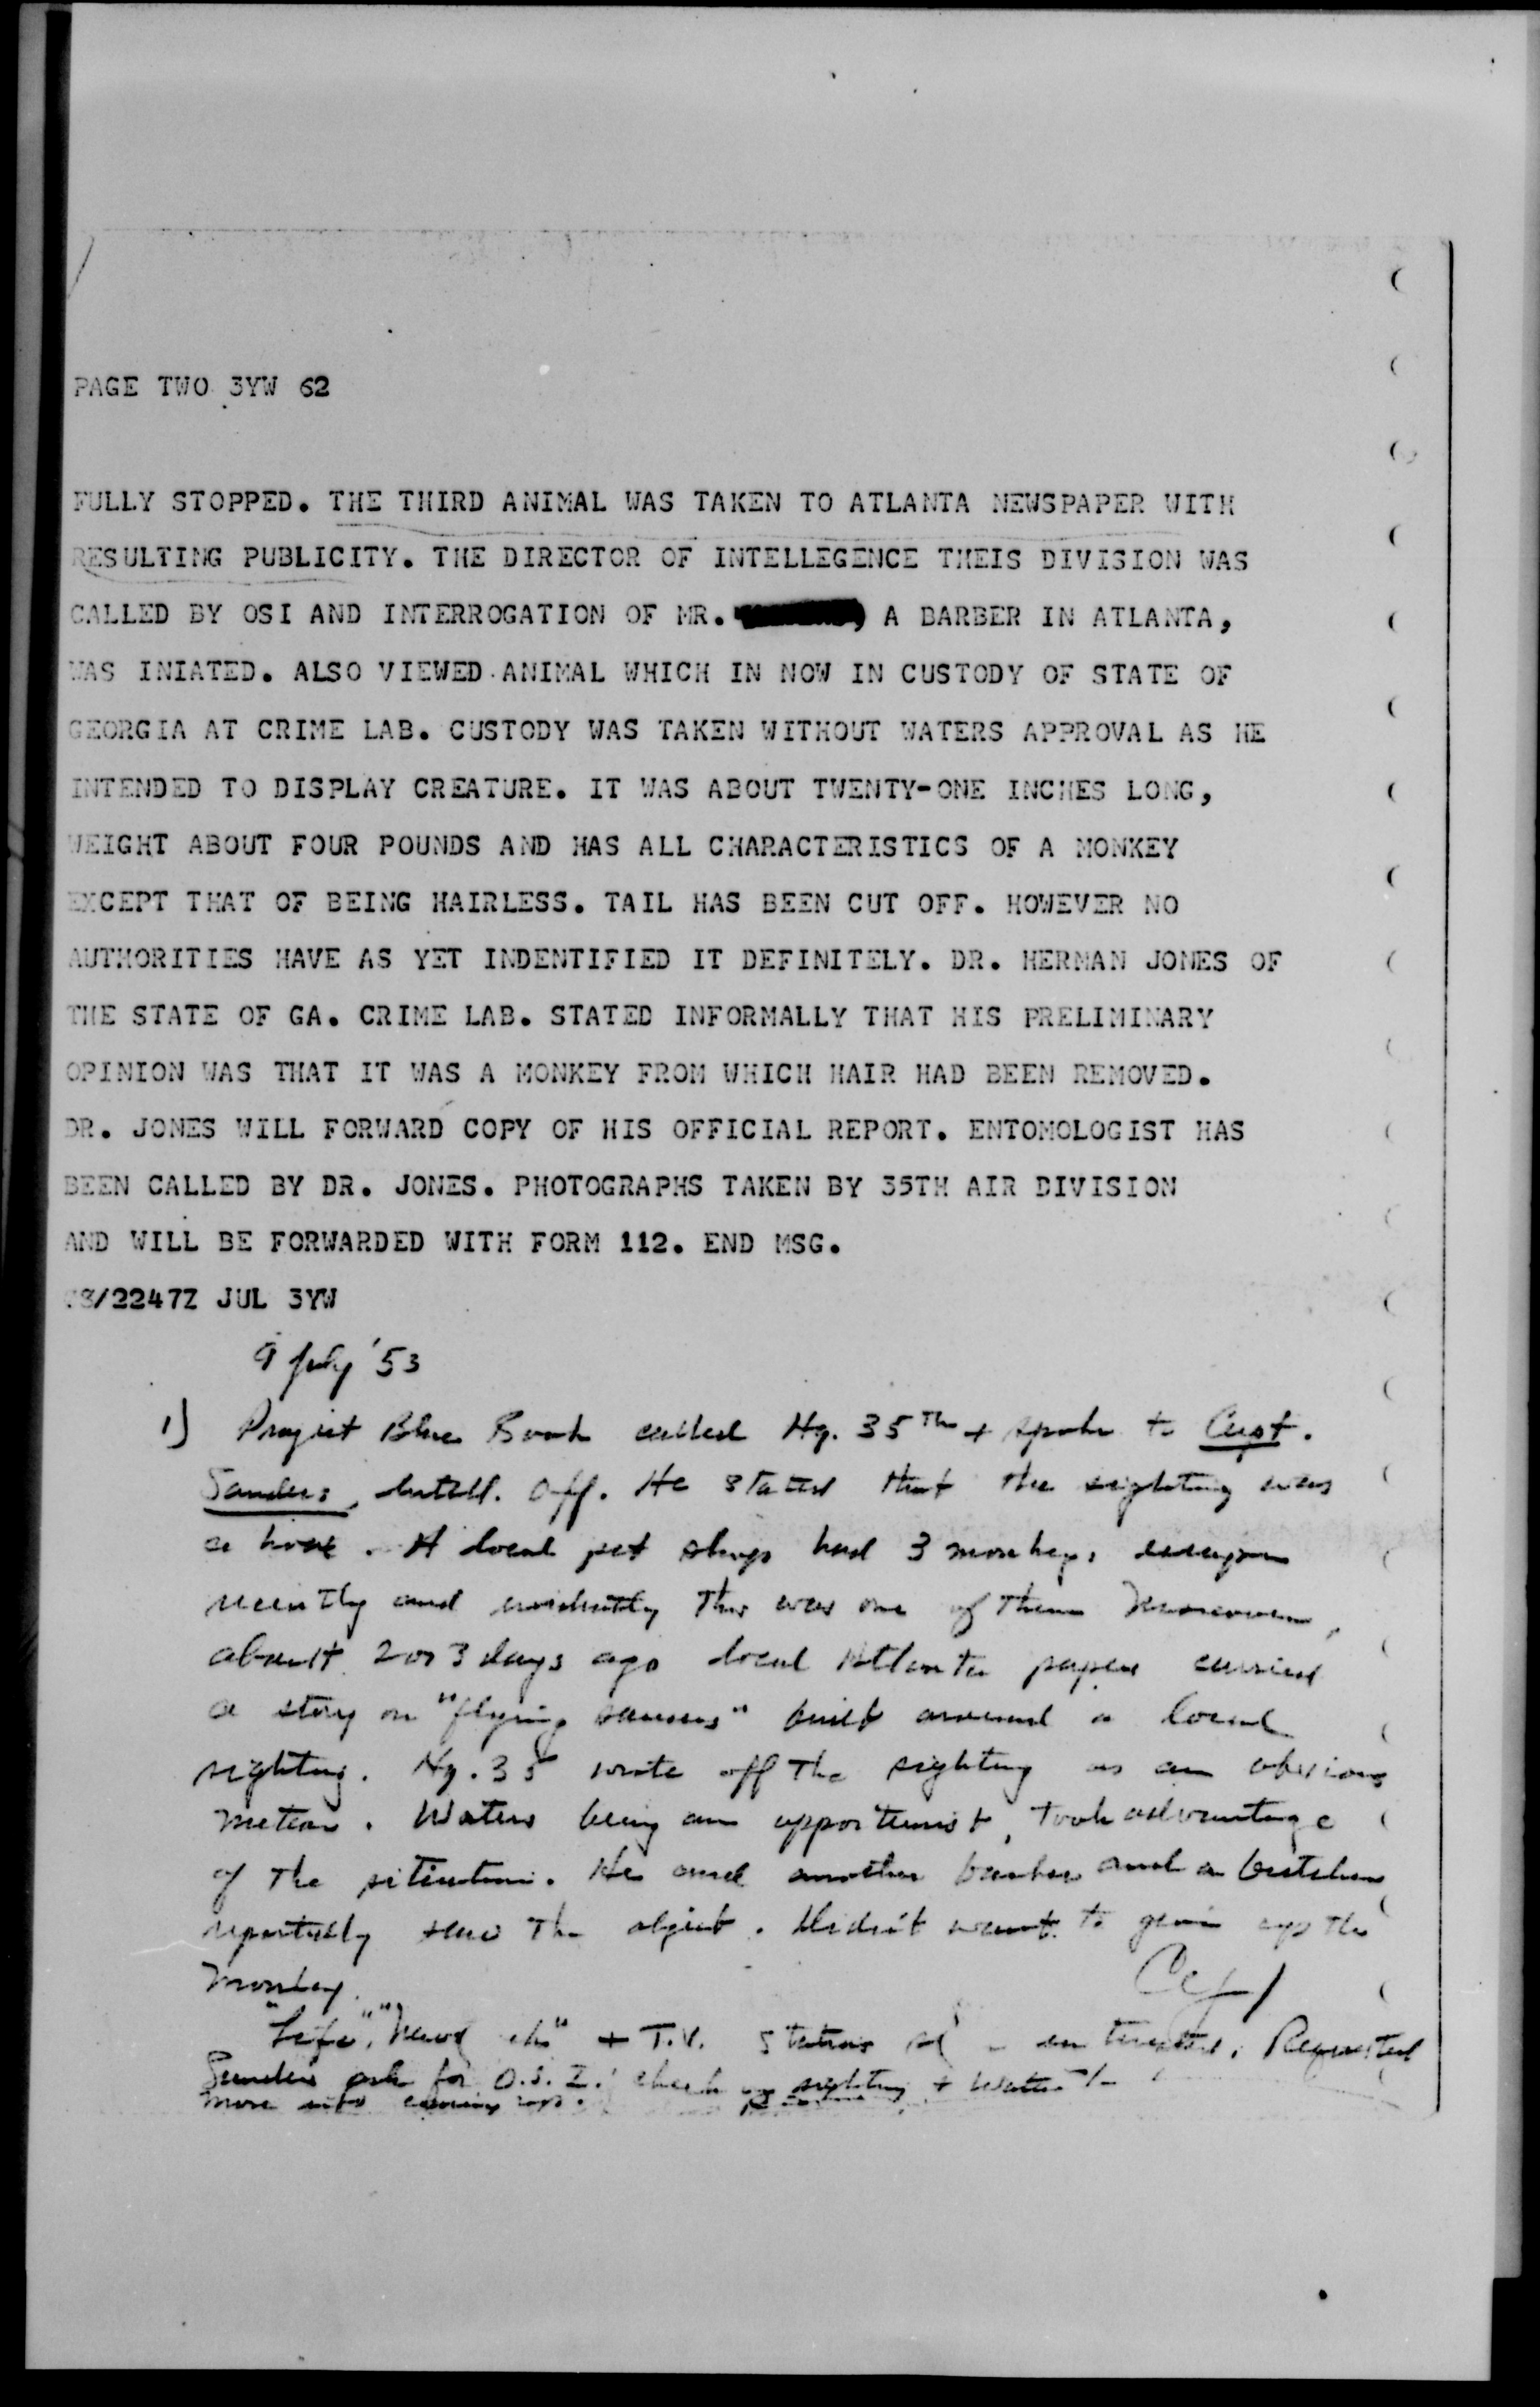 PAGE TWO 3YW 62
FULLY STOPPED. THE THIRD ANIMAL WAS TAKEN TO ATLANTA NEWSPAPER WITH
RESULTING PUBLICITY. THE DIRECTOR OF INTELLEGENCE THEIS DIVISION WAS
CALLED BY OSI AND INTERROGATION OF MR. A BARBER IN ATLANTA,
WAS INIATED. ALSO VIEWED ANIMAL WHICH IN NOW IN CUSTODY OF STATE OF
GEORGIA AT CRIME LAB. CUSTODY WAS TAKEN WITHOUT WATERS APPROVAL AS HE
INTENDED TO DISPLAY CREATURE. IT WAS ABOUT TWENTY-ONE INCHES LONG,
WEIGHT ABOUT FOUR POUNDS AND HAS ALL CHARACTERISTICS OF A MONKEY
EXCEPT THAT OF BEING HAIRLESS. TAIL HAS BEEN CUT OFF. HOWEVER NO
AUTHORITIES HAVE AS YET INDENTIFIED IT DEFINITELY. DR. HERMAN JONES OF
THE STATE OF GA. CRIME LAB. STATED INFORMALLY THAT HIS PRELIMINARY
OPINION WAS THAT IT WAS A MONKEY FROM WHICH HAIR HAD BEEN REMOVED.
DR. JONES WILL FORWARD COPY OF HIS OFFICIAL REPORT. ENTOMOLOGIST HAS
BEEN CALLED BY DR. JONES. PHOTOGRAPHS TAKEN BY 35TH AIR DIVISION
AND WILL BE FORWARDED WITH FORM 112. END MSG.
/2247Z JUL 3YW
9 July '53
1) Project Blue Book called Hq. 35Th + spoke to Capt.
Sanders, Intell. Off. He stated that the sighting was
a hoax. A local pet shop had 3 monkeys
recently and evidently this was one of them. Moreover,
about 2 or 3 days ago local Atlanta papers carried
a story on "flying saucers" built around a local
sighting. Hq. 35 wrote off the sighting as an obvious
meteor. Waters being an opportunist, took advantage
of the situation. He and another barber and a butcher
reportedly saw the object. Didn't want to give up the
monkey.
"Life", + T.V. Stations interested. Requested
Sanders ask for O.S.I. check on sighting + Waters
more info coming